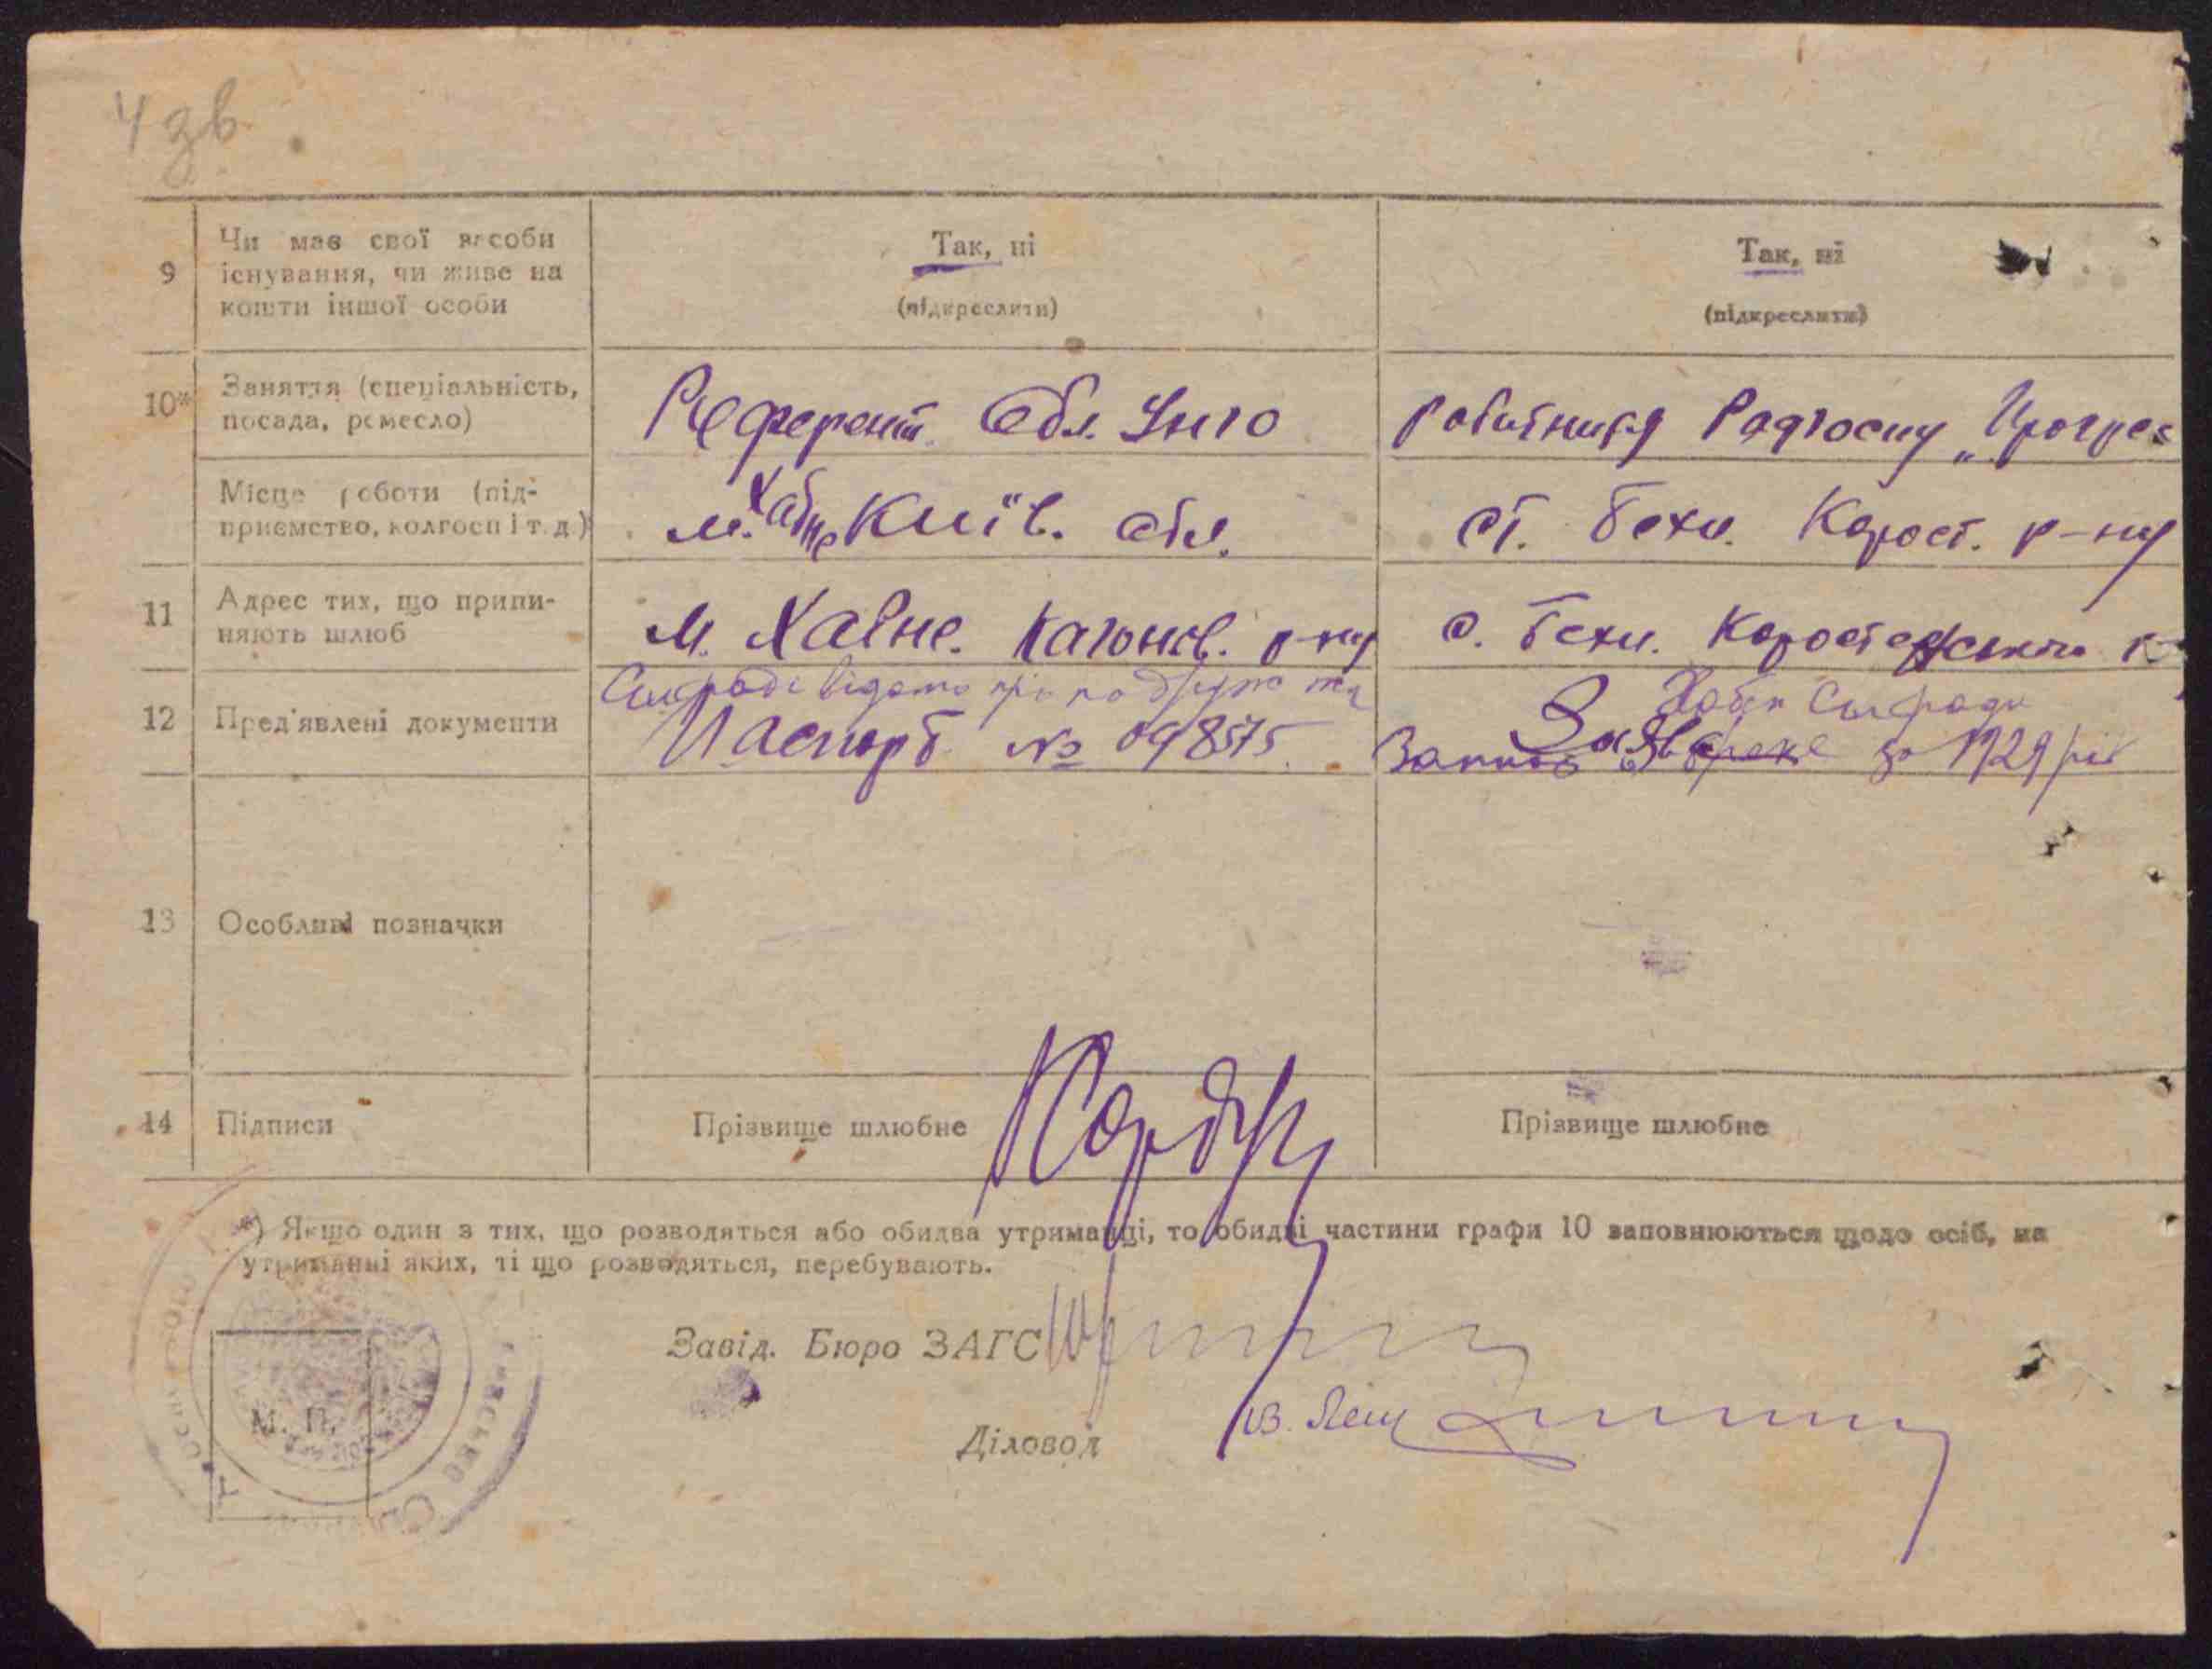 4 зв
9
Чи має свої засоби
існування, чи живе на
кошти іншої особи
Так, ні
(підкреслити)
Так, ні
(підкреслити)
10*
Заняття (спеціальність,
посада, ремесло)
Референт Обл. Унго
робітниця Радгоспу „Прогрес
Місце роботи (під-
приємство, колгосп і т. д.)
м. Хабне Київ. обл.
ст. Бехи. Корост. р-ну
11
Адрес тих, що припи-
няють шлюб
м. Хабне. Каганов. р-ну
с. Бехи. Коростенського р-
12
Пред'явлені документи
Паспорт № 098575.
за 1929 рік
13
Особливі позначки
14
Підписи
Прізвище шлюбне
Прізвище шлюбне
*) Якщо один з тих, що розводяться або обидва утриманці, то обидві частини графи 10 заповнюються щодо осіб, на
утриманні яких, ті що розводяться, перебувають.
Завід. Бюро ЗАГС
Діловод
М. П.